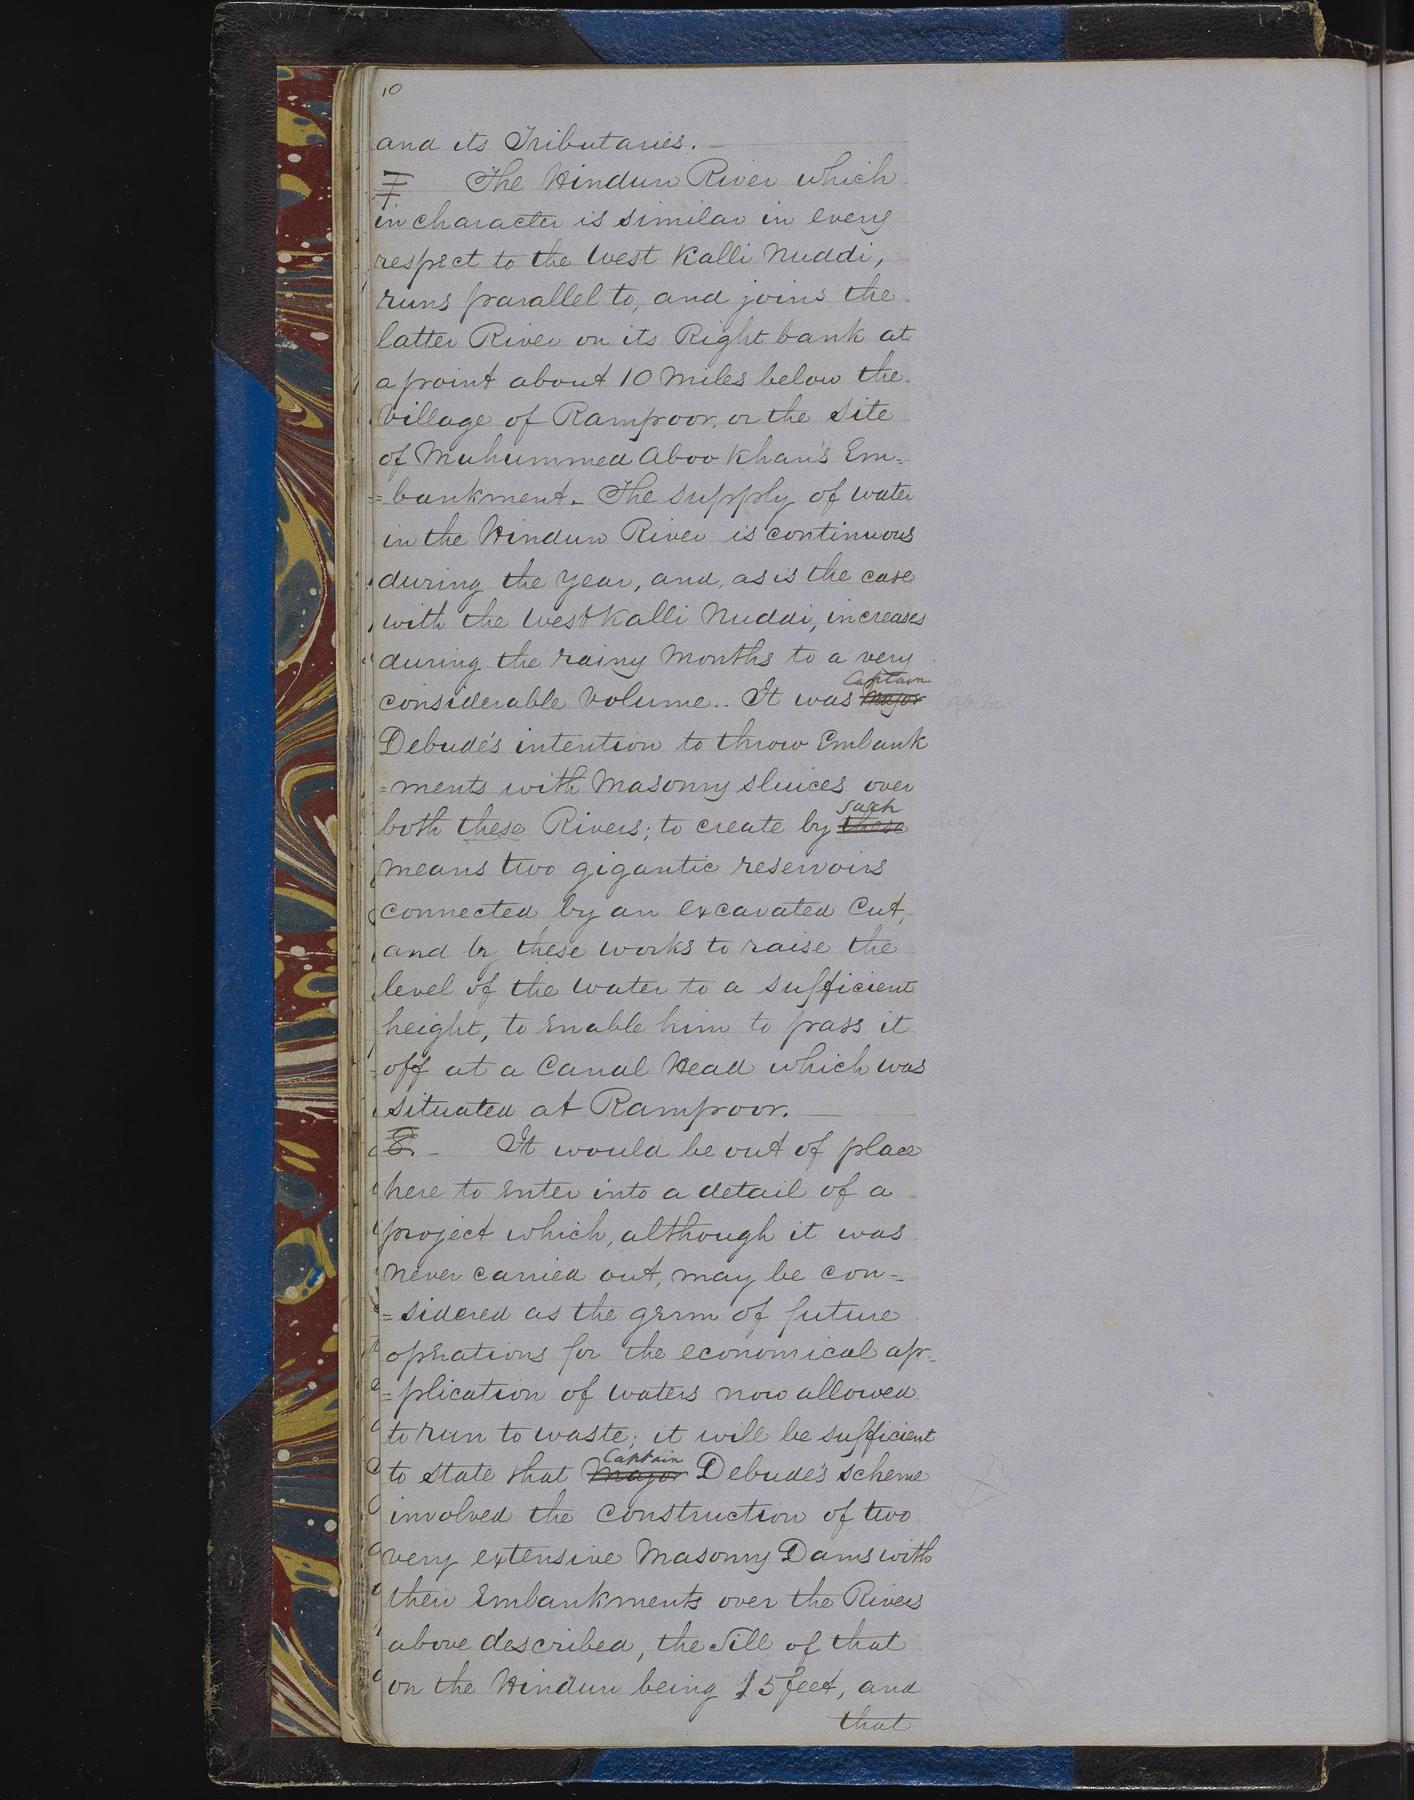 10
and its Tributaries. —
7 The Hindun River which
in character is similar in every
respect to the West Kalli Nuddi,
runs parallel to, and joins the
latter River on its Right bank at
a point about 10 Miles below the
Village of Rampoor, or the site
of Muhummed Aboo Khan's Em-
=bankment. The supply of water
in the Hindun River is continuous
during the year, and, as is the case
with the West Kalli Nuddi, increases
during the rainy Months to a very
Captain
considerable Volume. It was Major
Debude's intention to throw Embank
=ments with Masonry sluices over
such
both these Rivers; to create by these
means two gigantic reservoirs
connected by an excavated Cut,
and by these works to raise the
level of the water to a sufficient
height, to enable him to pass it
off at a Canal Head which was
situated at Rampoor. —
8. — It would be out of place
here to enter into a detail of a
project which, although it was
never carried out, may be con-
=sidered as the germ of future
operations for the economical ap-
=plication of waters now allowed
to run to waste; it will be sufficient
Captain
to state that Major Debude's scheme
involved the construction of two
very extensive Masonry Dams with
their Embankments over the Rivers
above described, the Sill of that
on the Hindun being 15 feet, and
that